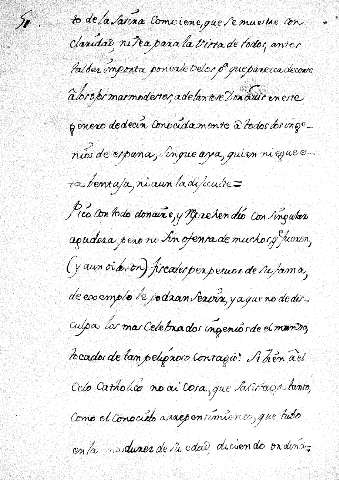 to de la Satira Comviene, que se muestre con
claridad, ni sea para la vista de todos, antes
talbez importa ponerle velos, pª que parezca decente
â los ojos mas modestos, adelantose Donaüs en este
genero de decir conocidamente â todos los inge-
nios de españa, sin que aya, quien niegue e-
sta bentaja, ni aun la dificulte =
Pico con todo donaire, y Reprehendio con singular
agudeza pero no sin ofensa de muchos, q fueron,
(y aun oi son) fiscales perpetuos de su fama,
de exemplo le podran servir, ya que no de dis-
culpa los mas Celebrados ingenios de el mundo,
tocados de tan peligroso Contagio: Si bien â el
Celo Catholico no ai Cosa, que satisfaga tanto,
como el Conocido arrepentimiento, que tubo
en la madurez de su edad, diciendo ordina-